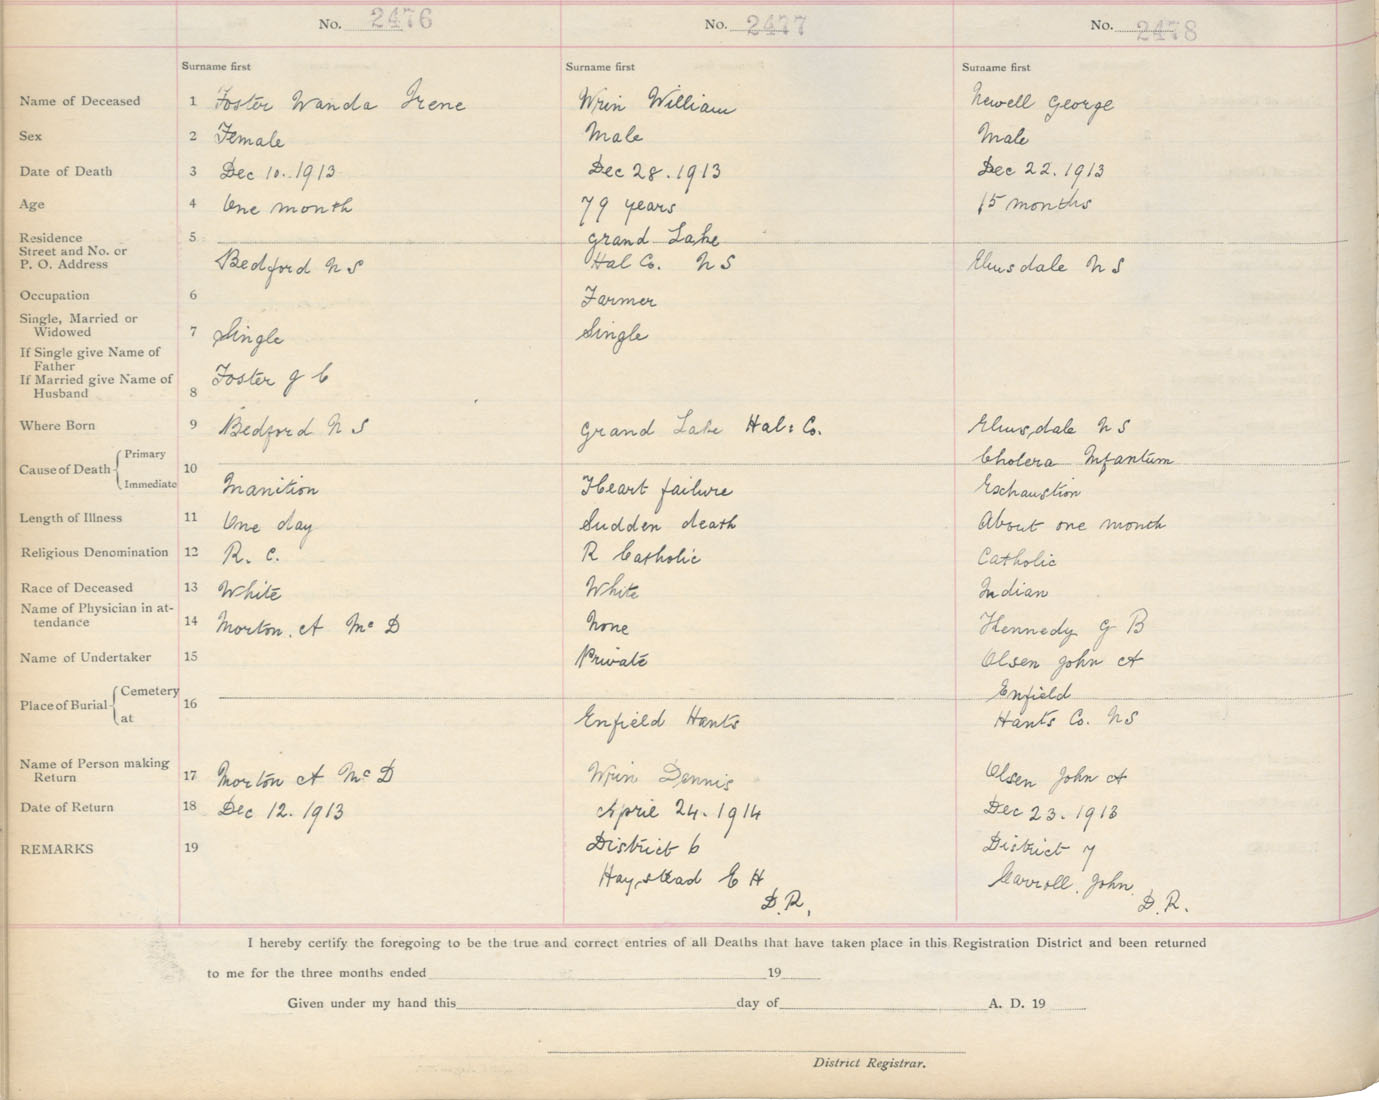 No. 2476 No. 2477 No. 2478
Surname first Surname first Surname first
Name of Deceased 1 Foster Wanda Irene Wrin William Newell George
Sex 2 Female Male Male
Date of Death 3 Dec 10. 1913 Dec 28. 1913 Dec 22. 1913
Age 4 One month 79 years 15 months
Residence 5 Grand Lake
Street and No. or
P. O. Address Bedford N S Hal Co. N S Elmsdale N S
Occupation 6 Farmer
Single, Married or
Widowed 7 Single Single
If Single give Name of
Father
If Married give Name of Foster G C
Husband 8
Where Born 9 Bedford N S Grand Lake Hal: Co. Elmsdale N S
Primary Cholera Infantum
Cause of Death 10
Immediate Inanition Heart failure Exhaustion
Length of Illness 11 One day Sudden death About one month
Religious Denomination 12 R. C. R Catholic Catholic
Race of Deceased 13 White White Indian
Name of Physician in at-
tendance 14 Morton. A McD None Kennedy G B
Name of Undertaker 15 Private Olsen John A
Cemetery Enfield
Place of Burial 16
at Enfield Hants Hants Co. N S
Name of Person making
Return 17 Morton A McD Wrin Dennis Olsen John A
Date of Return 18 Dec 12. 1913 April 24. 1914 Dec 23. 1913
REMARKS 19 District 6 District 7
Haystead E H Carroll. John
D.R. D.R.
I hereby certify the foregoing to be the true and correct entries of all Deaths that have taken place in this Registration District and been returned
to me for the three months ended 19
Given under my hand this day of A. D. 19
District Registrar.